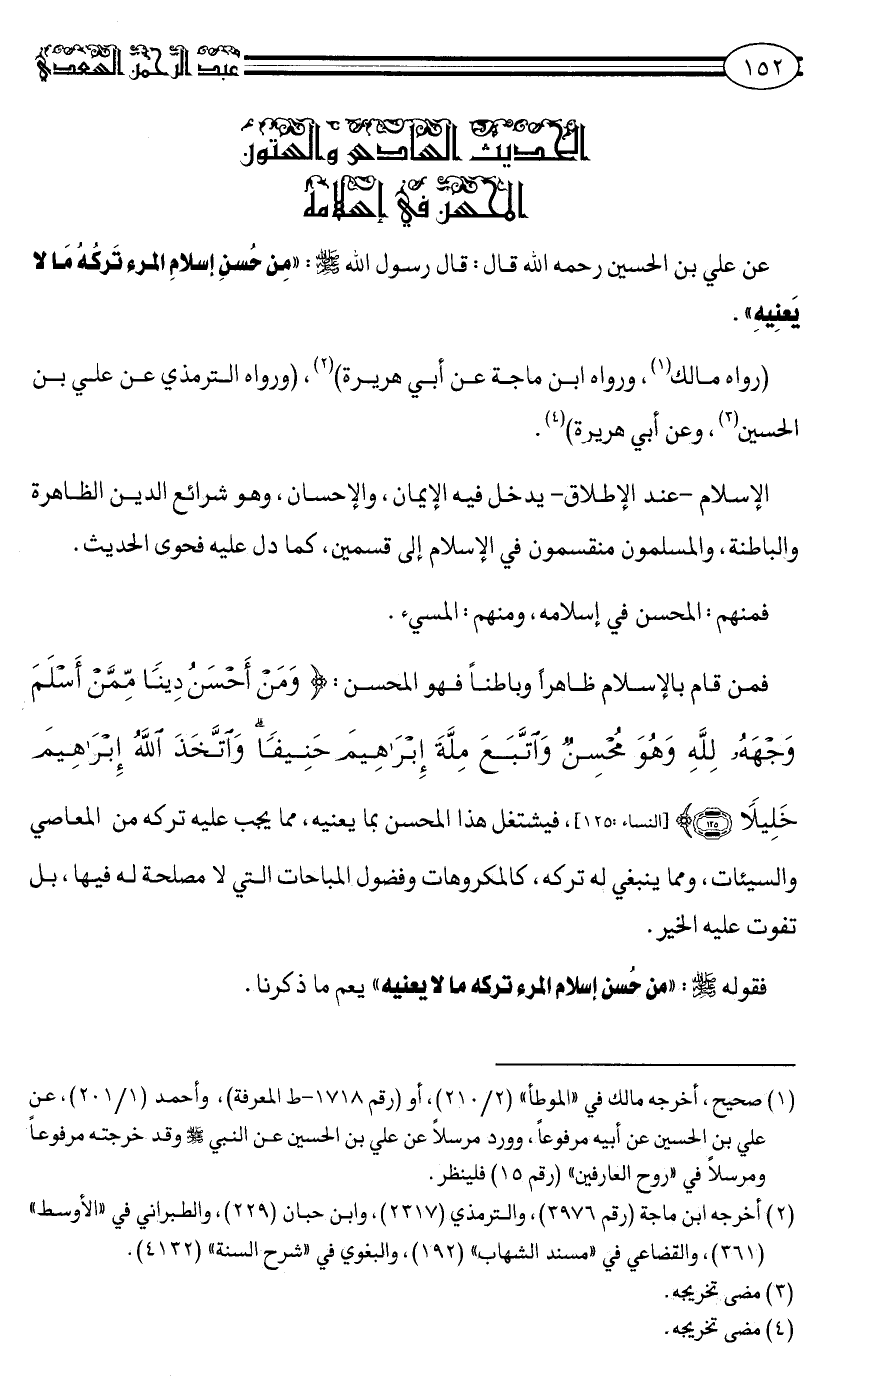 ١٥٢ عبد الرحمن السعدي
الحديث الحادي والستون
المحسن في إسلامه
عن علي بن الحسين رحمه الله قال: قال رسول الله ﷺ: «مِن حُسنِ إسلامِ المرء تَركُهُ مَا لا
يَعنِيهِ».
(رواه مالك(١)، ورواه ابن ماجة عن أبي هريرة)(٢)، (ورواه الترمذي عن علي بن
الحسين(٣)، وعن أبي هريرة)(٤).
الإسلام -عند الإطلاق- يدخل فيه الإيمان، والإحسان، وهو شرائع الدين الظاهرة
والباطنة، والمسلمون منقسمون في الإسلام إلى قسمين، كما دل عليه فحوى الحديث.
فمنهم: المحسن في إسلامه، ومنهم: المسيء.
فمن قام بالإسلام ظاهراً وباطناً فهو المحسن: ﴿وَمَنْ أَحْسَنُ دِينًا مِّمَّنْ أَسْلَمَ
وَجْهَهُۥ لِلَّهِ وَهُوَ مُحْسِنٌ وَٱتَّبَعَ مِلَّةَ إِبْرَٰهِيمَ حَنِيفًا ۗ وَٱتَّخَذَ ٱللَّهُ إِبْرَٰهِيمَ
خَلِيلًا ١٢٥﴾ [النساء: ١٢٥]، فيشتغل هذا المحسن بما يعنيه، مما يجب عليه تركه من المعاصي
والسيئات، ومما ينبغي له تركه، كالمكروهات وفضول المباحات التي لا مصلحة له فيها، بل
تفوت عليه الخير.
فقوله ﷺ: «من حُسن إسلام المرء تركه ما لا يعنيه» يعم ما ذكرنا.
(١) صحيح، أخرجه مالك في «الموطأ» (٢/٢١٠)، أو (رقم ١٧١٨-ط المعرفة)، وأحمد (١/٢٠١)، عن
علي بن الحسين عن أبيه مرفوعاً، وورد مرسلاً عن علي بن الحسين عن النبي ﷺ وقد خرجته مرفوعاً
ومرسلاً في «روح العارفين» (رقم ١٥) فلينظر.
(٢) أخرجه ابن ماجة (رقم ٣٩٧٦)، والترمذي (٢٣١٧)، وابن حبان (٢٢٩)، والطبراني في «الأوسط»
(٣٦١)، والقضاعي في «مسند الشهاب» (١٩٢)، والبغوي في «شرح السنة» (٤١٣٢).
(٣) مضى تخريجه.
(٤) مضى تخريجه.